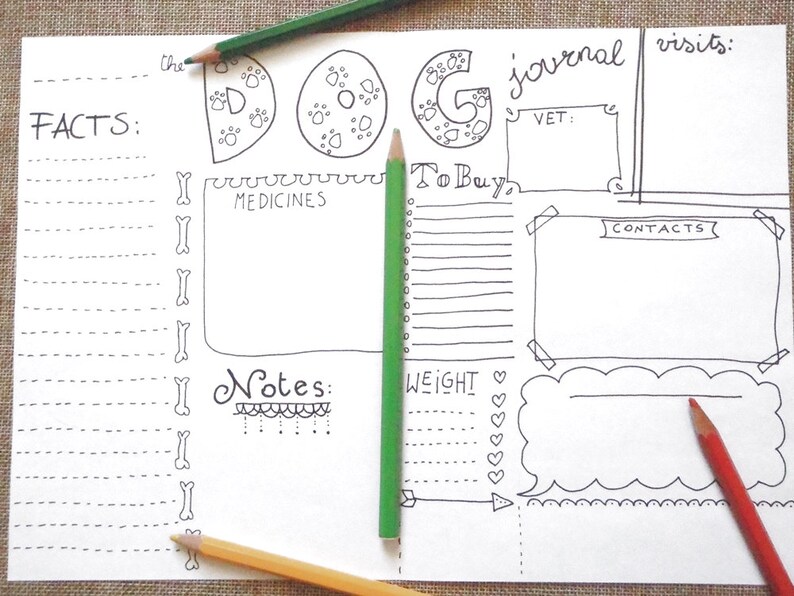 the DOG journal
visits:
FACTS:
VET:
MEDICINES
To Buy
CONTACTS
Notes:
WEIGHT